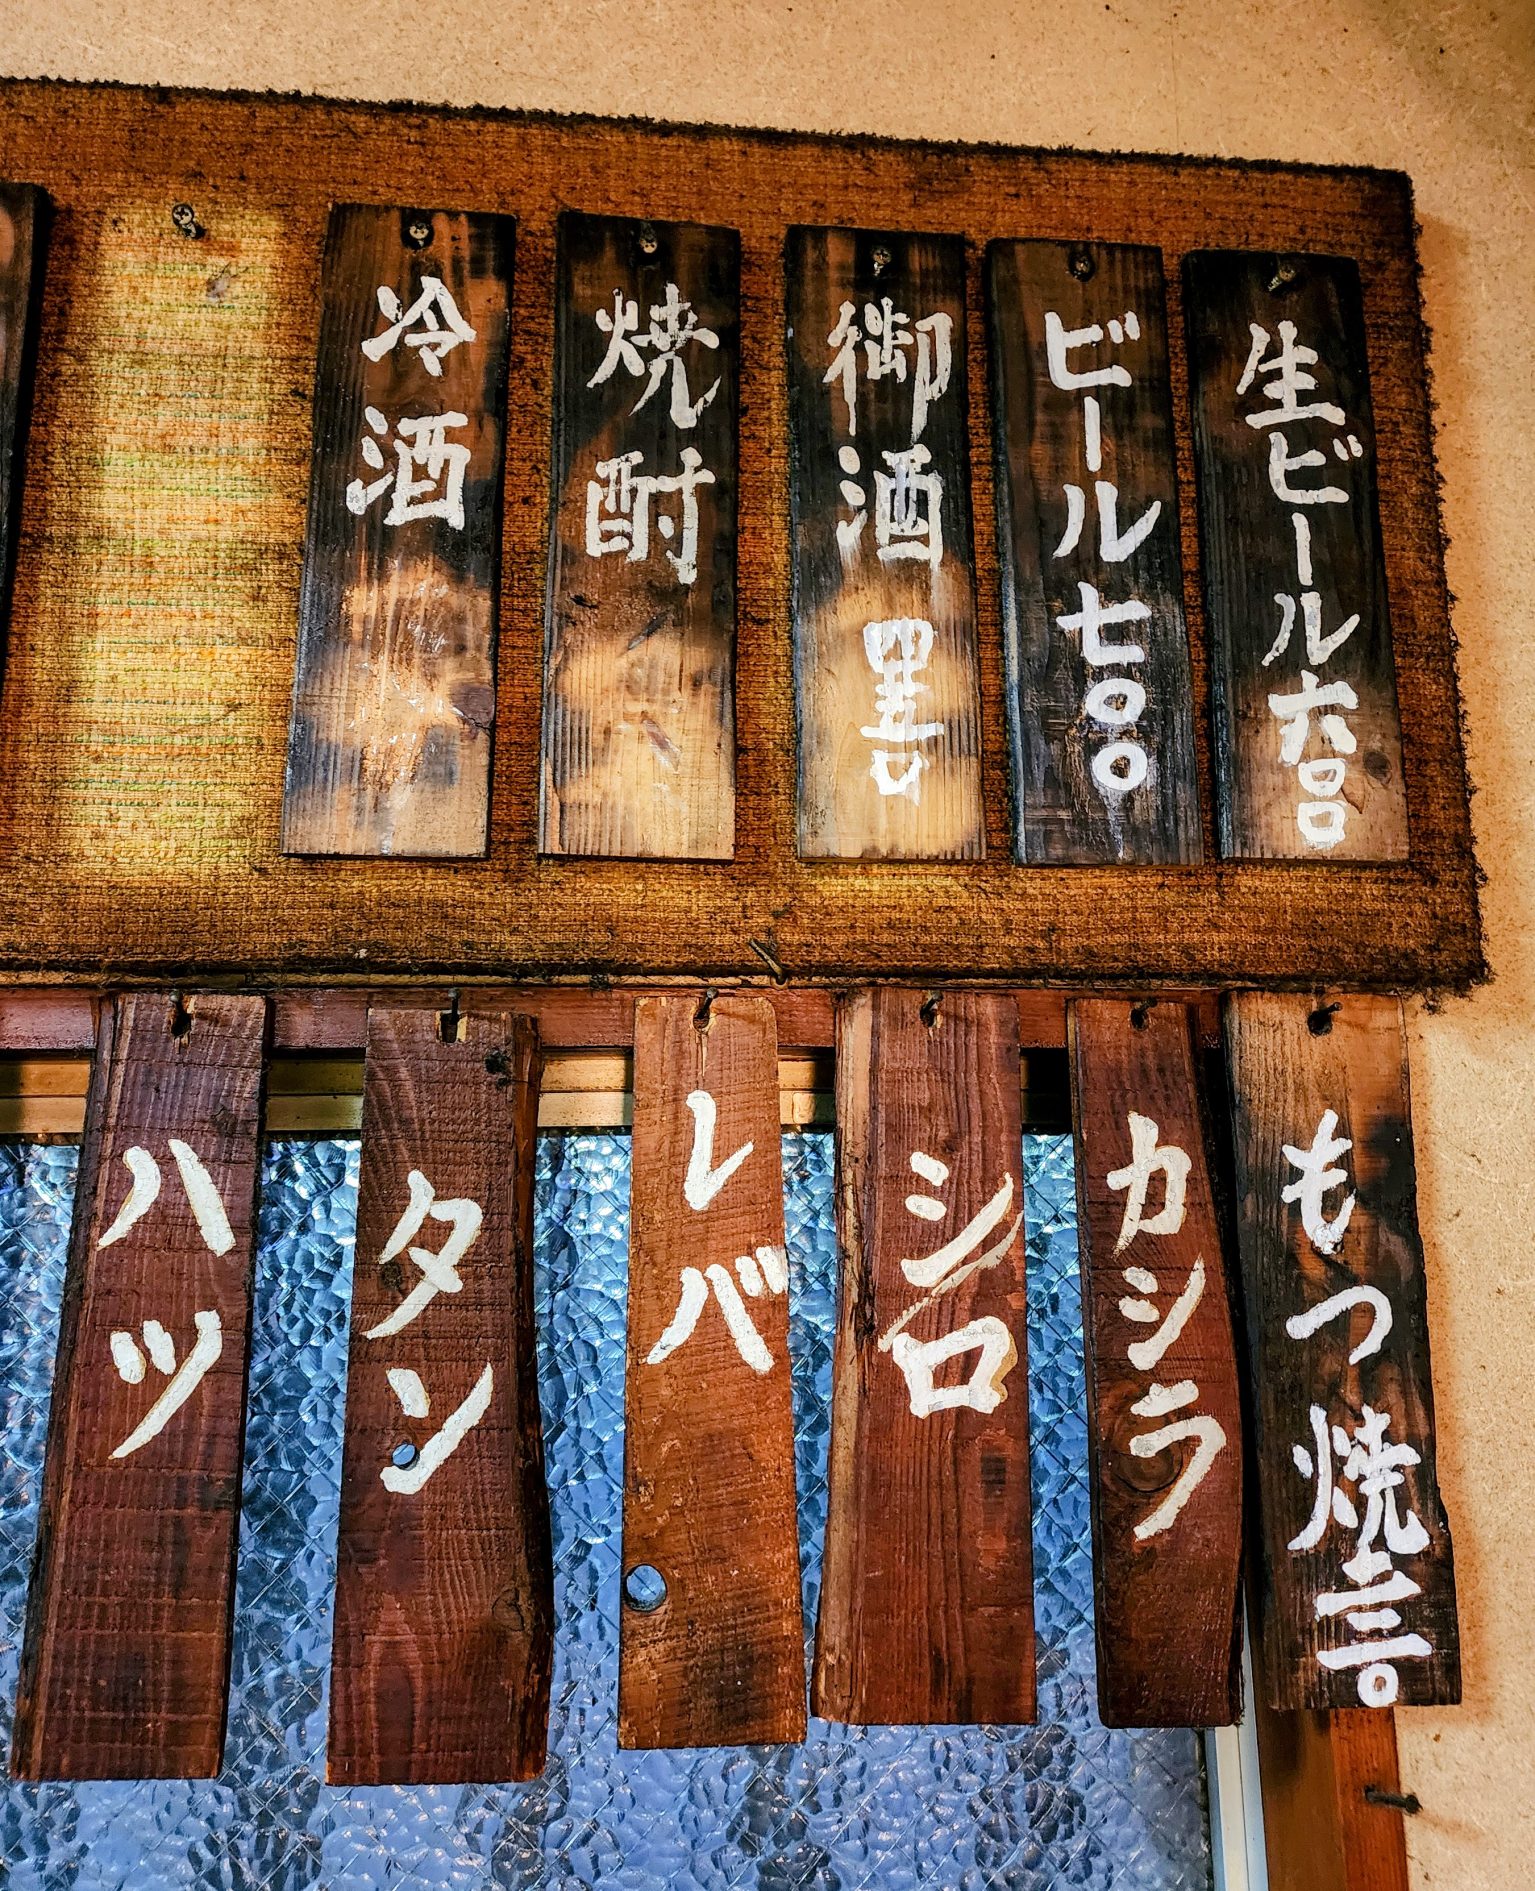 生ビール六〇〇
ビール七〇〇
御酒四五〇
焼酎
冷酒
もつ焼一三〇
カシラ
シロ
レバ
タン
ハツ